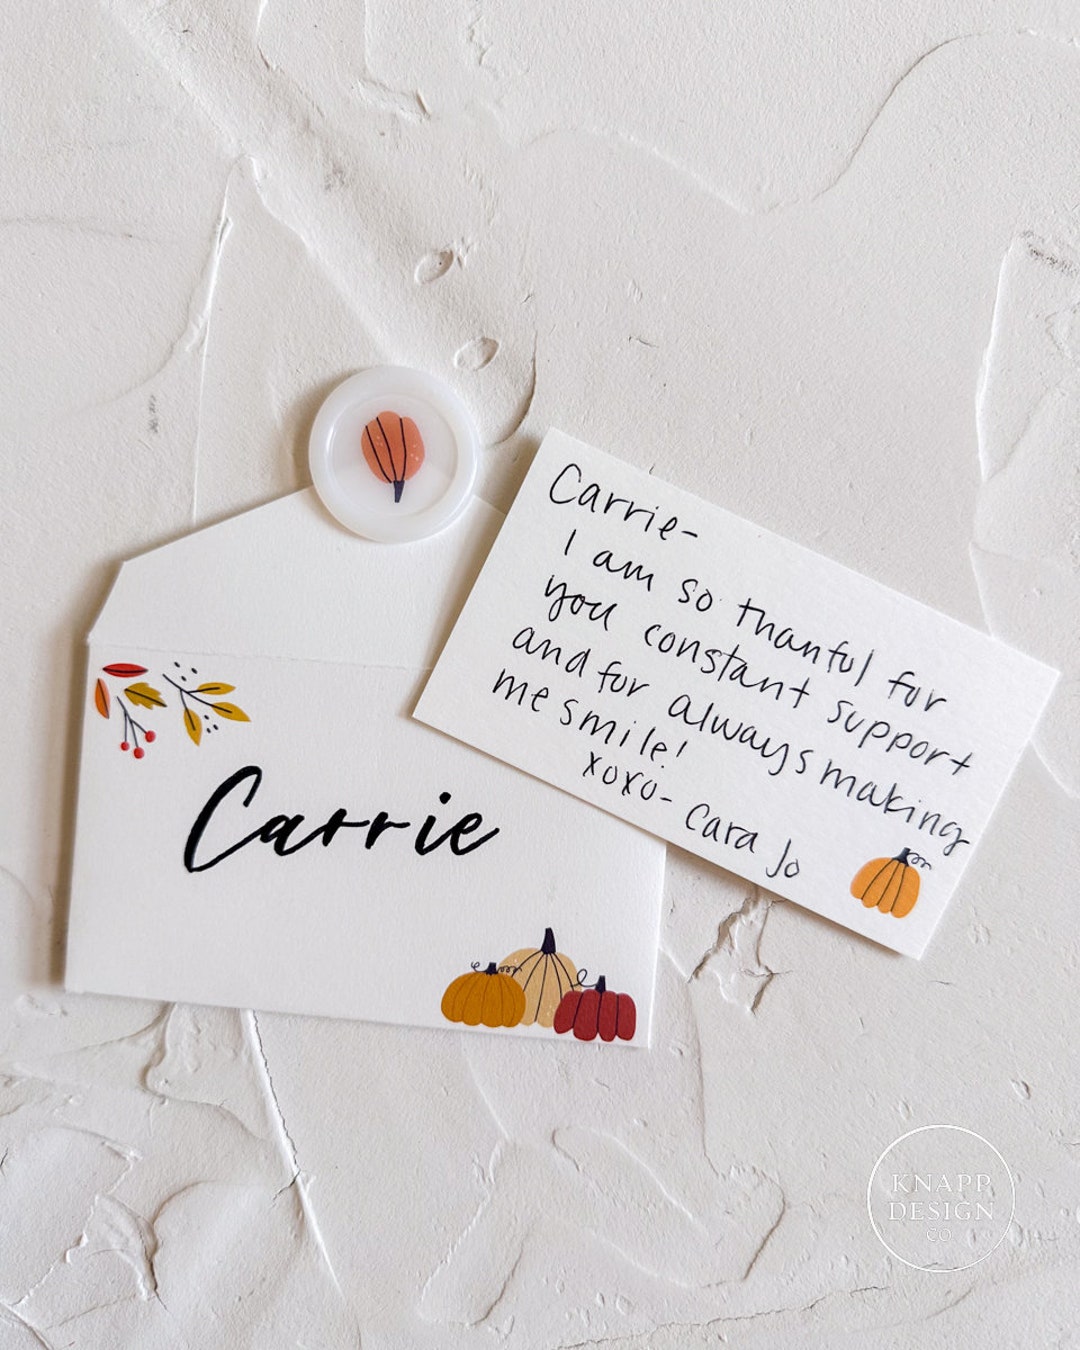 Carrie-
I am so thankful for
you constant support
and for always making
me smile!
xoxo- Cara Jo
Carrie
KNAPP
DESIGN
CO